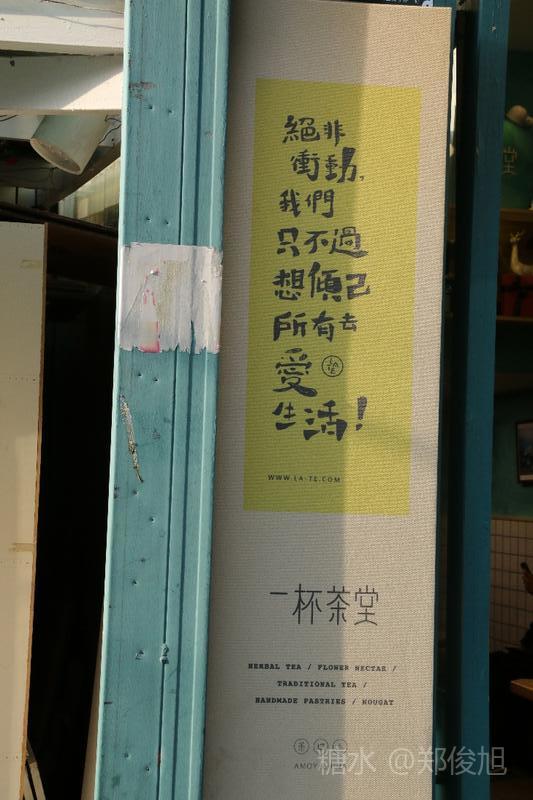 絕非
衝動，
我們
只不過
想傾己
所有去
愛
生活！
WWW.LA-TE.COM
一杯茶堂
HERBAL TEA / FLOWER NECTAR /
TRADITIONAL TEA /
HANDMADE PASTRIES / NOUGAT
AMOY
糖水 @郑俊旭
堂